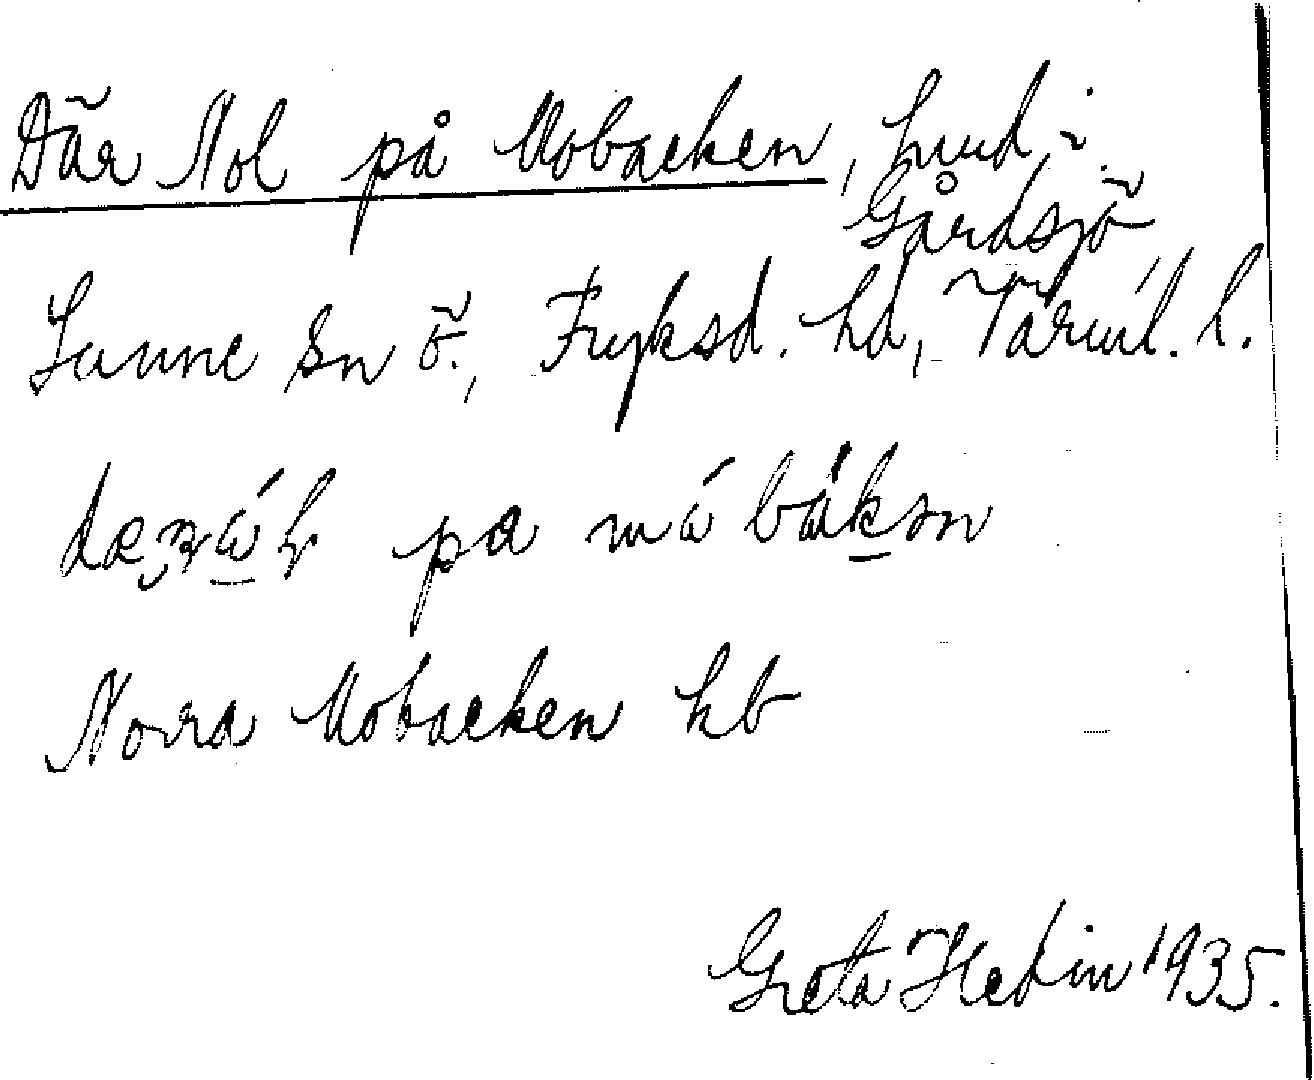 Där Nol på Mobacken, hmd i
Gårdsjö
Sunne sn ö., Fryksd. hd, Värml. l.
pa
Norra Mobacken hb
Greta Hedin 1935.